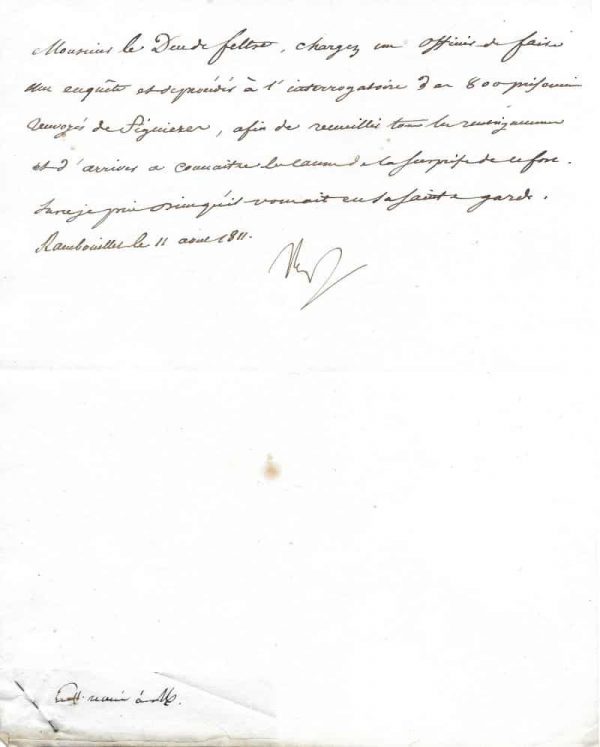 Monsieur le Duc de feltre, chargez un officier de faire
une enquête et de procéder à l'interrogatoire des 800 prisonniers
renvoyés de Figuieres, afin de recueillir tous les renseignemens
et d'arriver a connaitre les causes de la surprise de ce fort.
Sur ce je prie Dieu qu'il vous ait en sa sainte garde.
Rambouillet le 11 aout 1811.
Np
à M.